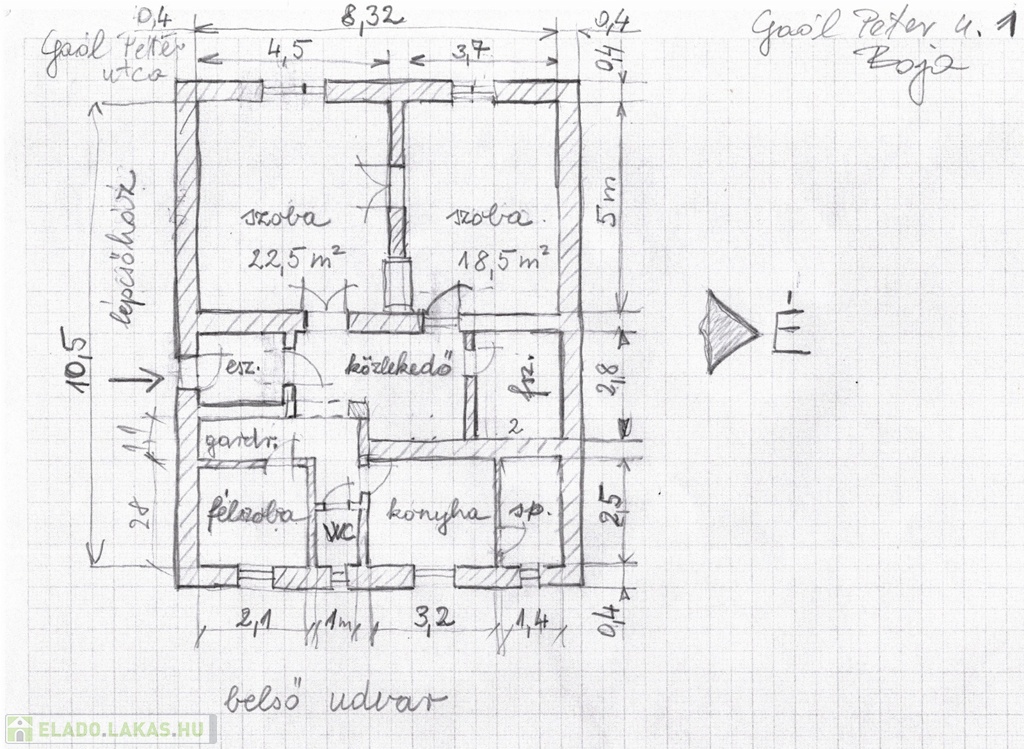 0,4
8,32
0,4
Gaól Péter u. 1
Baja
Gaól Péter
utca
4,5
3,7
0,4
lépcsőház
szoba
22,5 m²
szoba
18,5 m²
5 m
10,5
esz.
közlekedő
fsz.
2
2,8
É
gardr.
félszoba
WC
konyha
sp.
2,5
28
2,1
1m
3,2
1,4
0,4
belső udvar
ELADO.LAKAS.HU